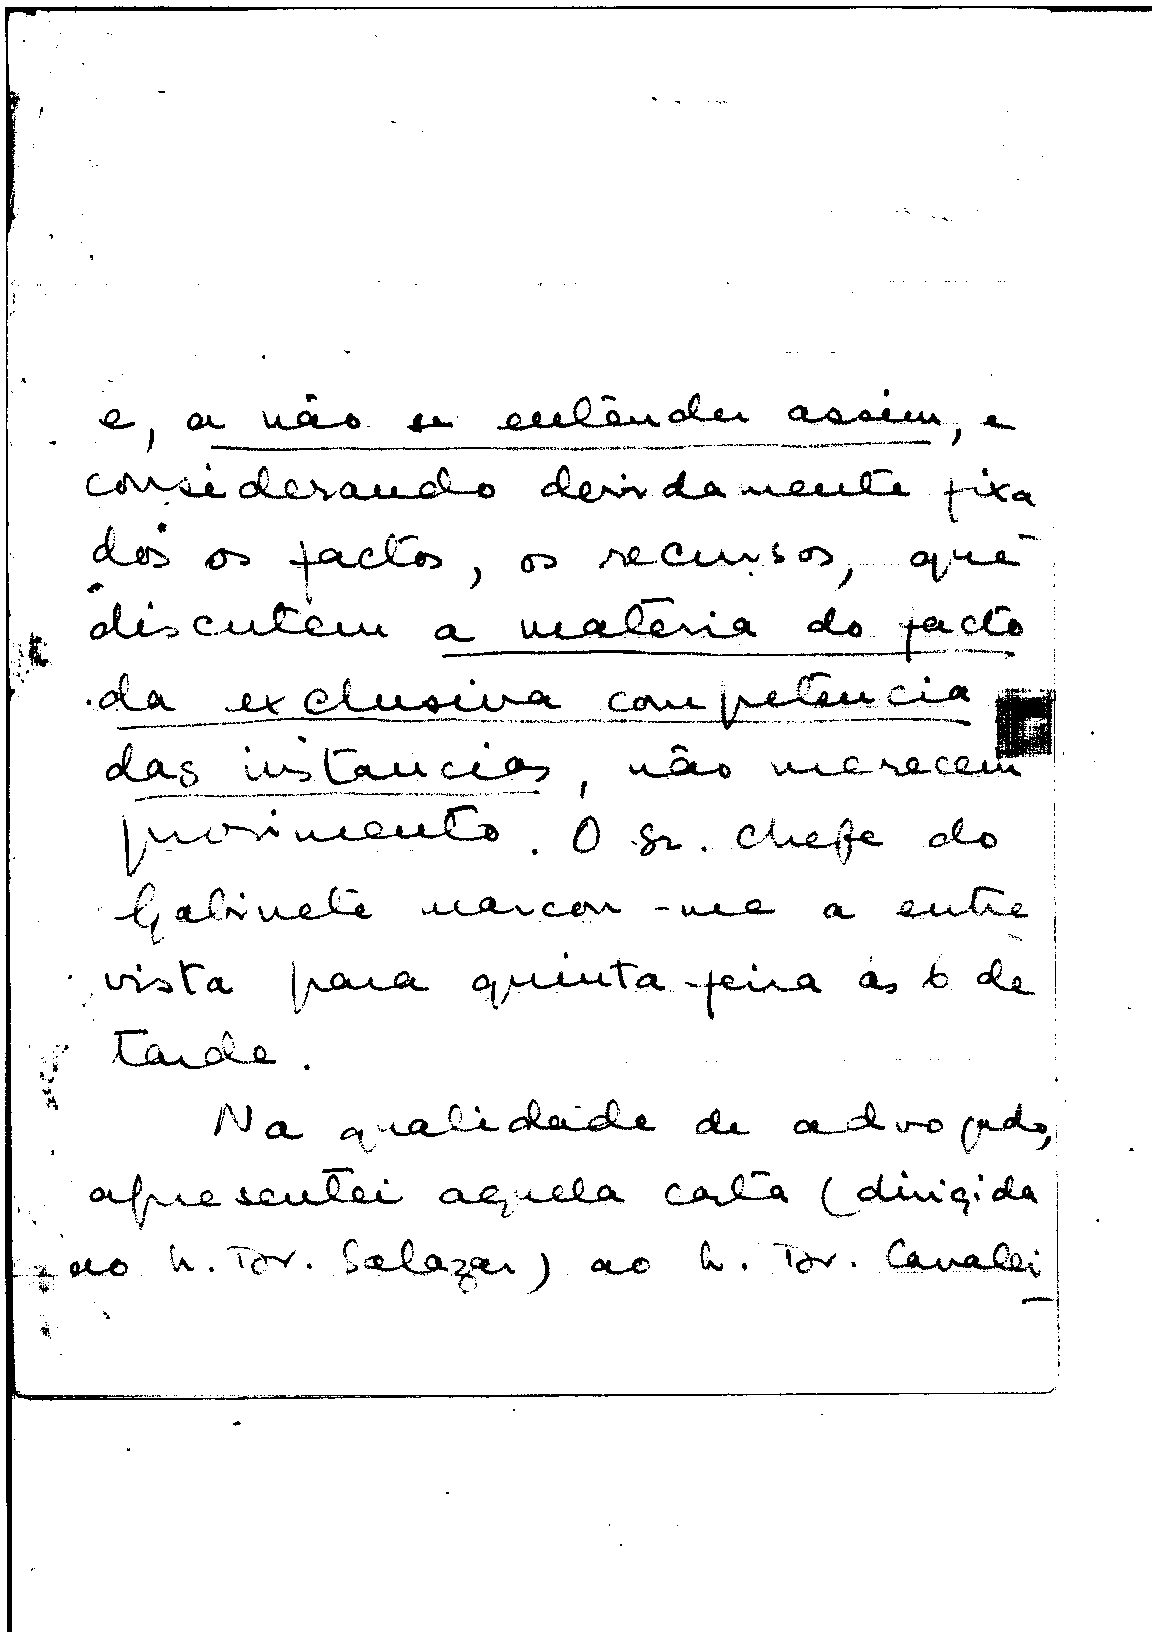 e, a não se entender assim, e
considerando devidamente fixa
dos os factos, os recursos, que
discutem a matéria do facto
da exclusiva competencia
das instancias, não merecem
provimento. O Sr. Chefe do
Gabinete marcou-me a entre
vista para quinta-feira às 6 de
tarde.
Na qualidade de advogado,
apresentei aquela carta (dirigida
ao Sr. Dr. Salazar) ao Sr. Dr. Cavalei